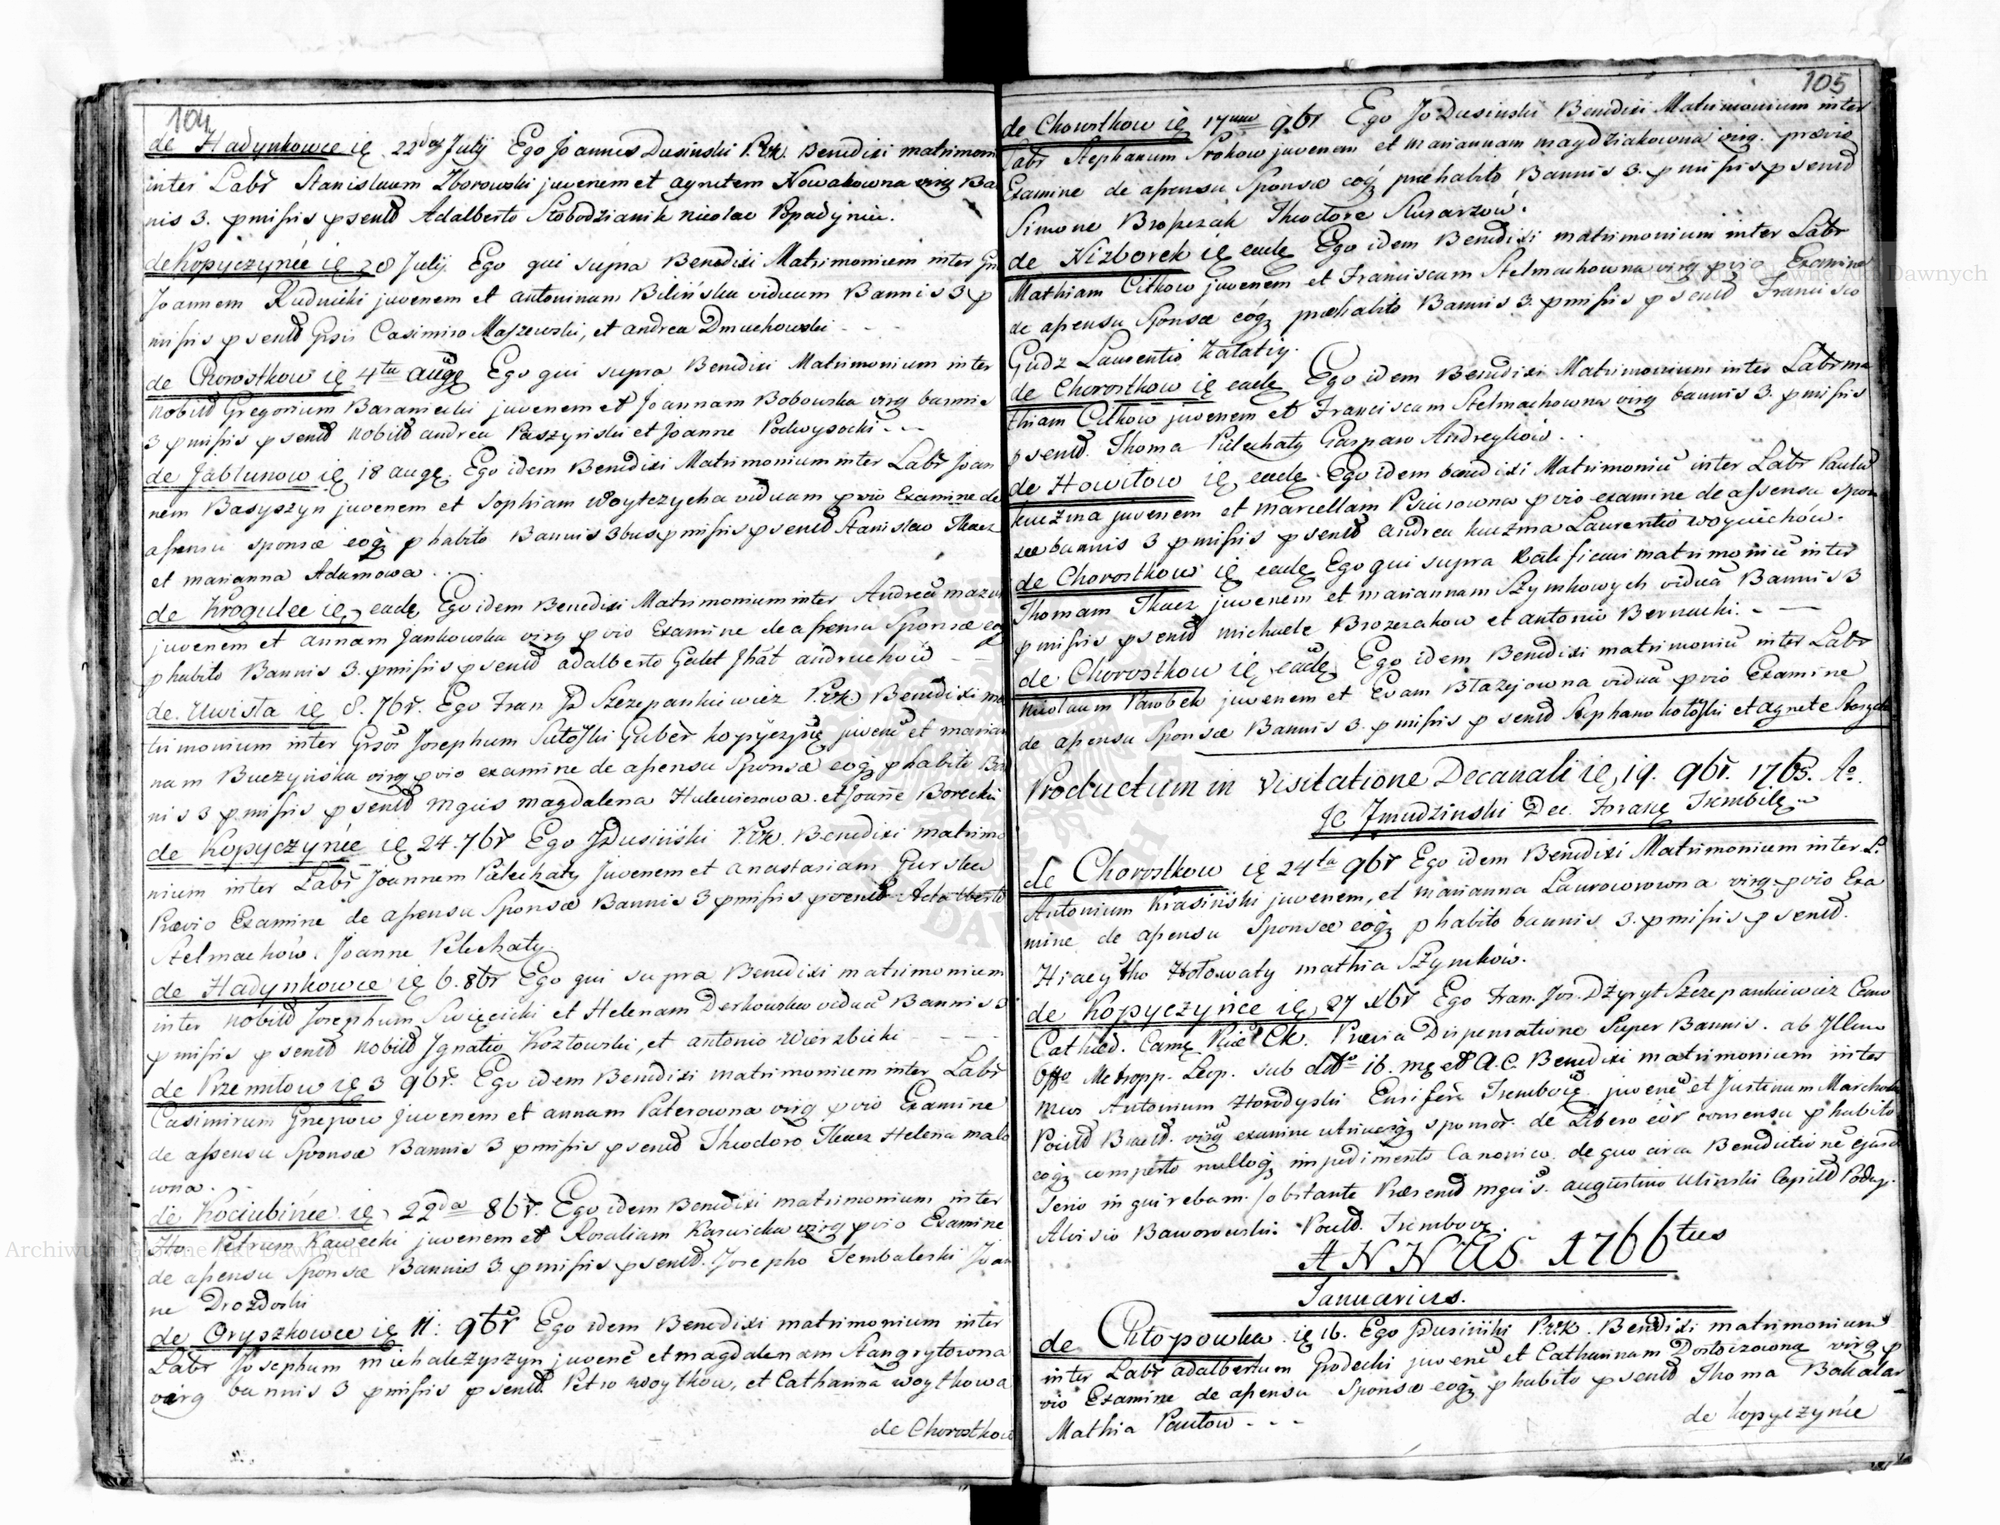 104
de Hadynkowce ię 22 July Ego Joannes Dusinski Benedixi matrimon
inter Labr Stanislaum Zborowski juvenem et agnetem Nowakowna virg Ba
nis 3. pmissis psentd Adalberto Słobodzianik nicolao Popadyniu.
de Kopyczyńce ię 28 July. Ego qui supra Benedixi Matrimonium inter
Joannem Rudnicki juvenem et antoninam Bilińska viduam Bannis 3 p
missis psentd Gsis Casimiro Maszewski, et andrea Dmuchowski - - -
de Chorostkow ię 4ta augę Ego qui supra Benedixi Matrimonium inter
Nobild Gregorium Baraniecki juvenem et Joannam Bobowska virg bannis
3 pmissis psentd Nobild andrea Paszynski et Joanne Podwysocki - -
de Jabłunow ię 18 augę. Ego idem Benedixi Matrimonium inter Labr Joan
nem Basyszyn juvenem et Sophiam Woytczycha viduam pvio Examine de
assensu sponsæ eoq phabito Bannis 3bus pmissis psentd Stanislao Tkacz
et marianna Adamowa . .
de Krogulec ię eadę Ego idem Benedixi Matrimonium inter Andreā mazur
juvenem et annam Jankowska virg pvio Examine de assensu Sponsæ eoq
phabito Bannis 3. pmissis psentd adalberto Gulet Jhat andruchow - -
de Uwisła ię 8. 7br. Ego Fran Jd Szczepankiewicz Benedixi ma
trimonium inter Josephum juvenē et marian
nam Buczyńska virg pvio examine de assensu Sponsæ eoq phabito Ban
nis 3 pmissis psentd mgcis magdalena Hulewiczowa. et Joanē Borecki
de Kopyczyńce ię 24. 7br Ego JDusiński Benedixi matrimo
nium inter Labr Joannem Pelechaty Juvenem et anastasiam Gurska
Prævio Examine de assensu Sponsæ Bannis 3 pmissis psentd Adalberto
Stelmachów. Joanne Pelechaty.
de Hadynkowce ię 6. 8br Ego qui supra Benedixi matrimonium
inter Nobild Josephum Swięcicki et Helenam Derkowska viduā Bannis 3
pmissis psentd Nobild Ignatio Kozłowski, et antonio Wierzbicki - - -
de Przemiłow ię 3 9br. Ego idem Benedixi matrimonium inter Labr
Casimirum Gnepow juvenem et annam Paterowna virg pvio Examine
de assensu Sponsæ Bannis 3 pmissis psentd Theodoro Tkacz Helena malo
wna.
de Kociubińce ię 22da 8br. Ego idem Benedixi matrimonium inter
Petrum Kawecki juvenem et Rosaliam Karwicka virg pvio Examine
de assensu Sponsæ Bannis 3. pmissis psentd. Josepho Tembaleski Joan
ne Drozdoski
de Oryszkowce ię 11. 9br Ego idem Benedixi matrimonium inter
Labr Josephum michalczyszyn juvenē et magdalenam Stangrytowna
virg bannis 3 pmissis psentd. Petro Woytkow, et Catharina Woytkowa
de Chorostkow
105
de Chorostkow ię 17 9br Ego Jo Dusinski Benedixi Matrimonium inter
Labr Stephanum Prokow juvenem et mariannam magdziakowna virg. prævio
Examine de assensu Sponsæ eoq præhabito Bannis 3. pmissis psentd
Simone Theodoro Slusarzow.
de Nizborek ię eadę Ego idem Benedixi matrimonium inter Labr
Mathiam Citkow juvenem et Franciscam Stelmachowna virg pvio Examine
de assensu Sponsæ eoq præhabito Bannis 3. pmissis psentd Francisco
Gudz Laurentio Załatiy.
de Chorostkow ię eadę Ego idem Benedixi Matrimonium inter Labr ma
thiam Citkow juvenem et Franciscam Stelmachowna virg bannis 3. pmissis
psentd. Thoma Pelechaty Gasparo Andreykow. .
de Howiłow ię eadę. Ego idem benedixi Matrimoniū inter Labr Paulū
kuzma juvenem et marcellam pvio examine de assensu spon
sæ bannis 3 pmissis psentd andrea kuzma Laurentio woyciechów.
de Chorostkow ię eadę Ego qui supra Ratificavi matrimoniū inter
Thomam Tkacz juvenem et mariannam Szymkowych viduā Bannis 3
pmissis psentd michaele Brozczakow et antonio Bernacki. - -
de Chorostkow ię eadę Ego idem Benedixi matrimoniū inter Labr
Nicolaum Parobek juvenem et Evam Błazejowna viduā pvio Examine
de assensu Sponsæ Bannis 3. pmissis psentd Stephano et agnete
Productum in Visitatione Decanali ię 19. 9br. 1765. Ao.
JC Jmudzinski Dec. Foranę Trembilę
de Chorostkow ię 24ta 9br Ego idem Benedixi Matrimonium inter L.
Antonium Krasiński juvenem, et marianna Laurowowna virg. pvio Exa
mine de assensu Sponsæ eoq phabito bannis 3. pmissis psentd.
Hiacyntho Hołowaty mathia Szymków.
de Kopyczyńce ię 27 xbr Ego Fran. Jos. Dzyryt Szczepankiewicz
Cathed. Prævia Dispensatione Super Bannis. ab Illmo
Offo Metropp. Leop. sub 16. mę et A.C. Benedixi matrimonium inter
Antonium Horodyski juvenē et Justinam Marchocka
virg examine utriusq sponsor. de Libero eor consensu phabito
eoq comperto nulloq impedimento Canonico. de quo circa Benedictionē
serio inquirebam. obstante Præsentd mgcis. augustino Ulinski
Aloisio Baworowski. Trembow.
ANNUS 1766tus
Januarius.
de Chłopowka ię 16. Ego JDusiński Benedixi matrimoniū
inter Labr adalbertum Grodecki juvenē et Catharinam virg p
vio Examine de assensu Sponsæ eoq phabito psentd Thoma Bakalar
Mathia Pawłow - - -
de Kopyczyńce
Archiwum Główne Akt Dawnych